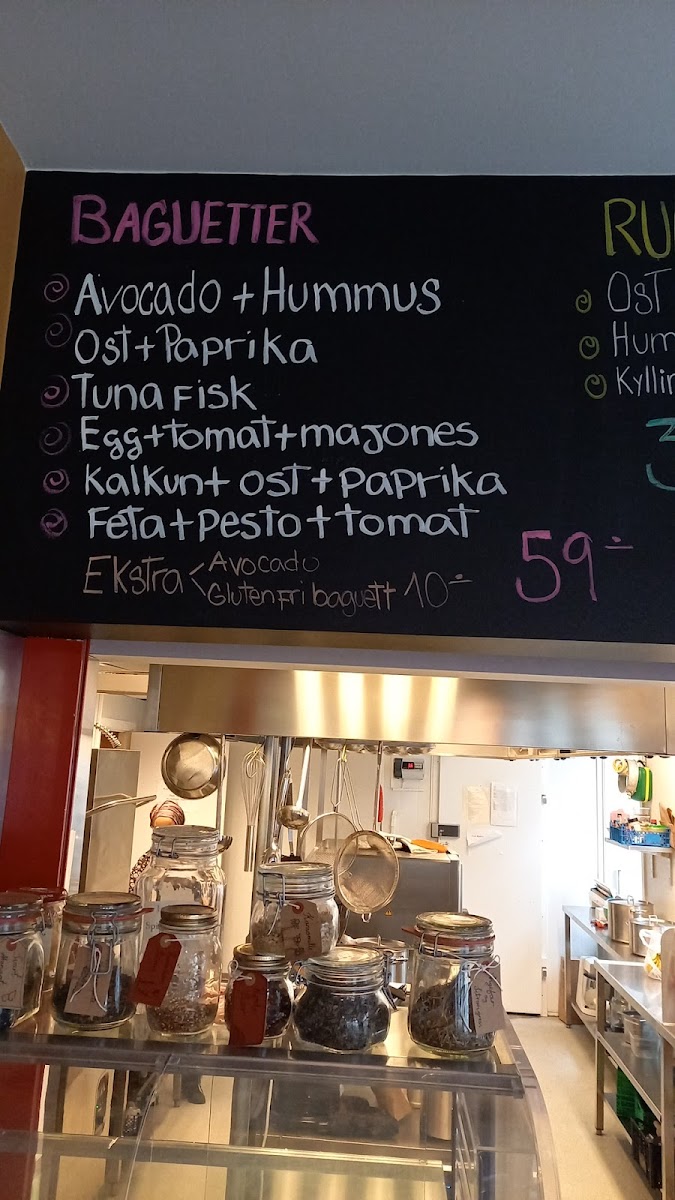 BAGUETTER
Avocado + Hummus
Ost + Paprika
Tuna FISK
Egg + tomat + majones
Kalkun + ost + paprika
Feta + pesto + tomat
Ekstra < Avocado
Glutenfri baguett 10-
59-
RU
Ost
Hum
Kyllin
3